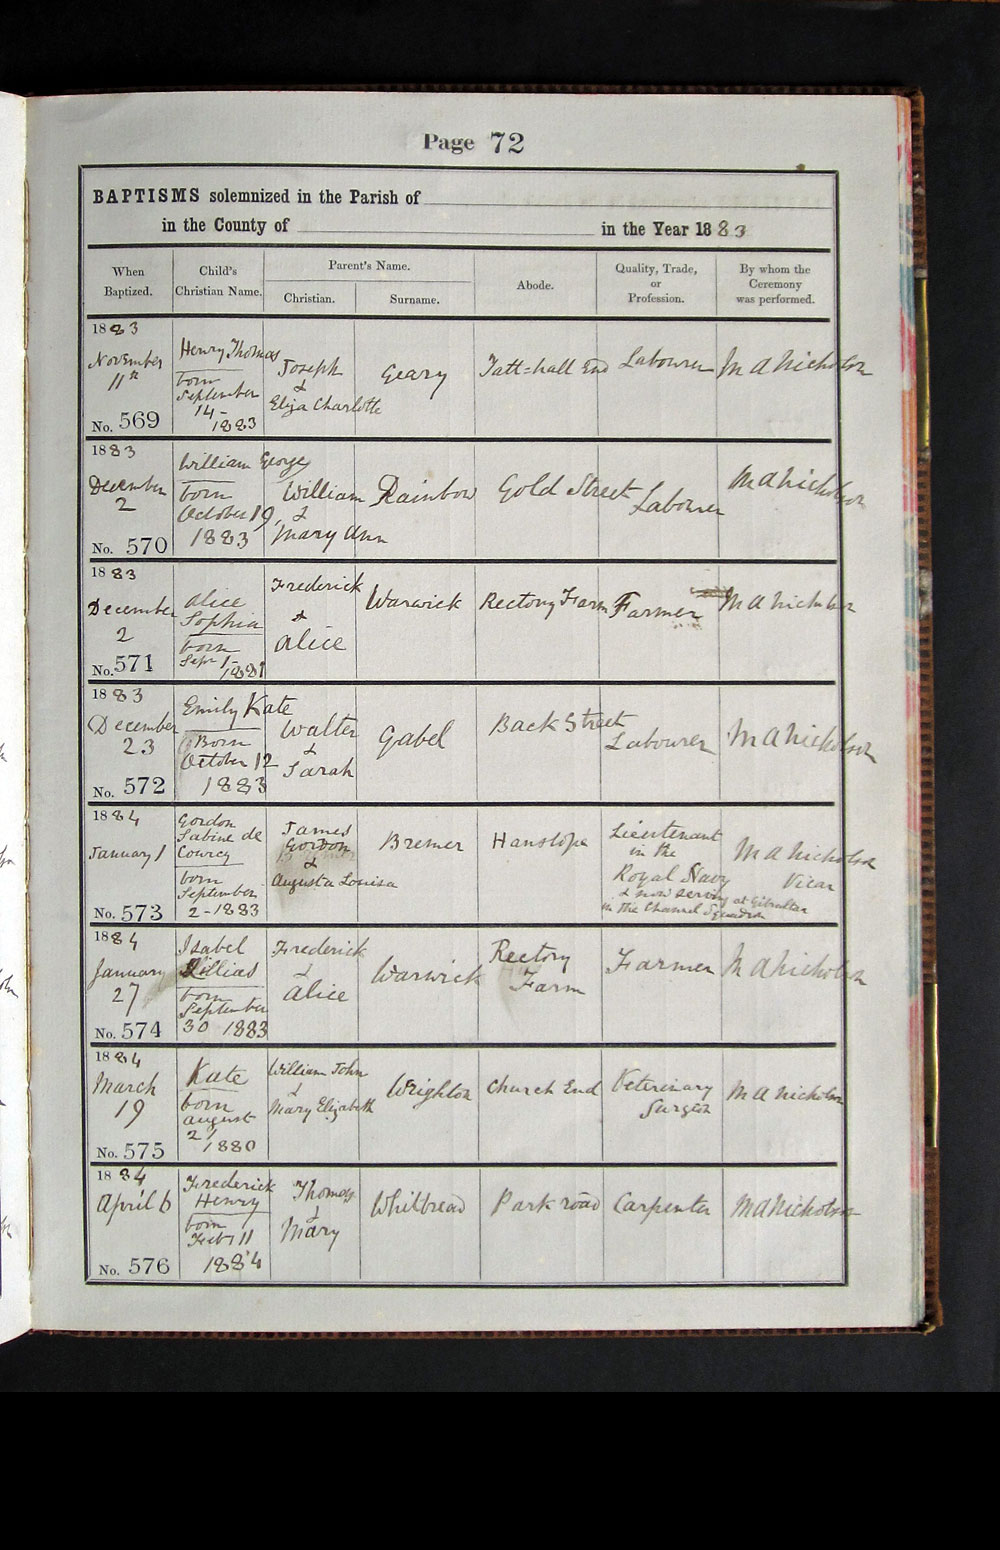 Page 72
BAPTISMS solemnized in the Parish of
in the County of in the Year 1883
When Baptized.
Child's Christian Name.
Parent's Name.
Christian.
Surname.
Abode.
Quality, Trade, or Profession.
By whom the Ceremony was performed.
1883
November
11th
No. 569
Henry Thomas
born
September
14-
1883
Joseph
&
Eliza Charlotte
Geary
Tatt=hall End
Labourer
M A Nicholson
1883
December
2
No. 570
William George
born
October 19,
1883
William
&
Mary Ann
Rainbow
Gold Street
Labourer
M A Nicholson
1883
December
2
No. 571
Alice
Sophia
born
Sepr 1-
1881
Frederick
&
Alice
Warwick
Rectory Farm
Farmer
M A Nicholson
1883
December
23
No. 572
Emily Kate
Born
October 12
1883
Walter
&
Sarah
Gabel
Back Street
Labourer
M A Nicholson
1884
January 1
No. 573
Gordon
Sabine de
Courcy
born
September
2-1883
James
Gordon
&
Augusta Louisa
Bremer
Hanslope
Lieutenant
in the
Royal Navy
& now serving at Gibraltar
in the Channel Squadron
M A Nicholson
Vicar
1884
January
27
No. 574
Isabel
Lillias
born
September
30 1883
Frederick
&
Alice
Warwick
Rectory
Farm
Farmer
M A Nicholson
1884
March
19
No. 575
Kate
born
August
21
1880
William John
&
Mary Elizabeth
Wrighton
Church End
Veterinary
Surgeon
M A Nicholson
1884
April 6
No. 576
Frederick
Henry
born
Feby 11
1884
Thomas
&
Mary
Whitbread
Park road
Carpenter
M A Nicholson